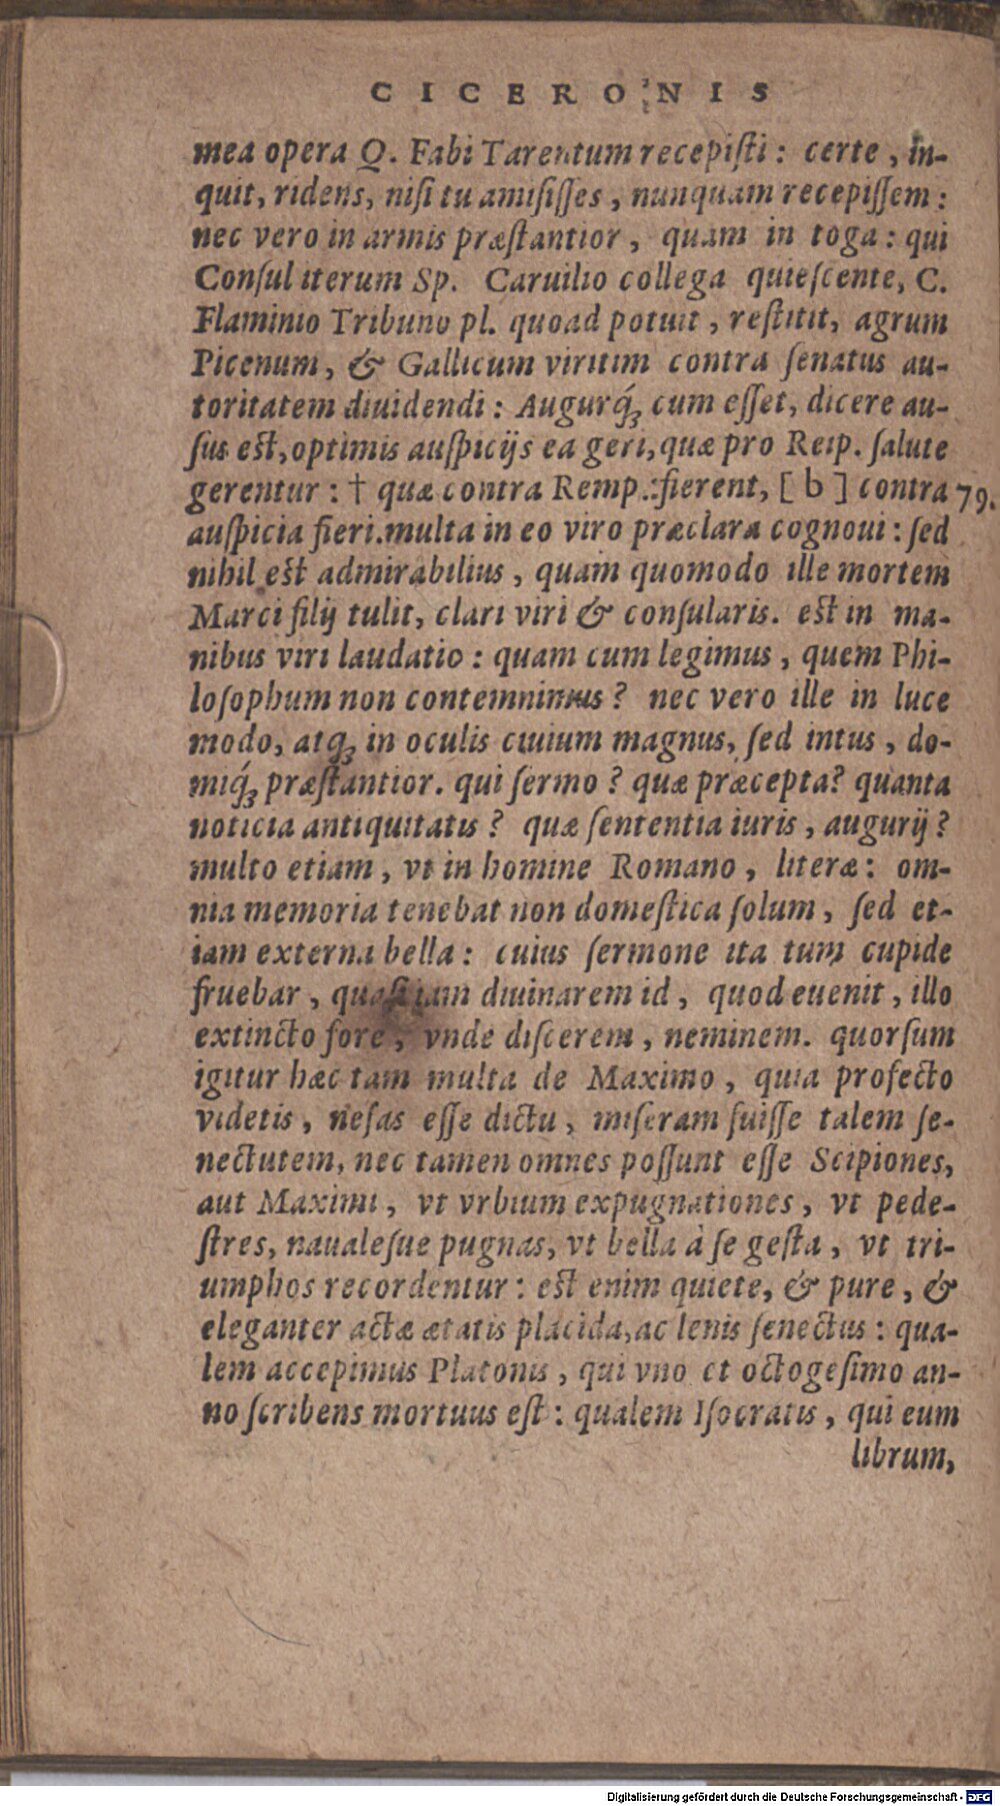 CICERONIS
mea opera Q. Fabi Tarentum recepiſti: certe, in-
quit, ridens, niſi tu amiſiſſes, nunquam recepiſſem:
nec vero in armis præſtantior, quam in toga: qui
Conſul iterum Sp. Caruilio collega quieſcente, C.
Flaminio Tribuno pl. quoad potuit, reſtitit, agrum
Picenum, & Gallicum viritim contra ſenatus au-
toritatem diuidendi: Augurq́ꝫ cum eſſet, dicere au-
ſus eſt, optimis auſpicijs ea geri, quæ pro Reip. ſalute
gerentur: † quæ contra Remp.:fierent, [b] contra 79.
auſpicia fieri. multa in eo viro præclara cognoui: ſed
nihil eſt admirabilius, quam quomodo ille mortem
Marci filij tulit, clari viri & conſularis. eſt in ma-
nibus viri laudatio: quam cum legimus, quem Phi-
loſophum non contemnimus? nec vero ille in luce
modo, atqꝫ in oculis ciuium magnus, ſed intus, do-
miq́ꝫ præſtantior. qui ſermo? quæ præcepta? quanta
noticia antiquitatis? quæ ſententia iuris, augurij?
multo etiam, vt in homine Romano, literæ: om-
nia memoria tenebat non domeſtica ſolum, ſed et-
iam externa bella: cuius ſermone ita tum cupide
fruebar, quaſi iam diuinarem id, quod euenit, illo
extincto fore, vnde diſcerem, neminem. quorſum
igitur hæc tam multa de Maximo, quia profecto
videtis, nefas eſſe dictu, miſeram fuiſſe talem ſe-
nectutem, nec tamen omnes poſſunt eſſe Scipiones,
aut Maximi, vt vrbium expugnationes, vt pede-
ſtres, naualeſue pugnas, vt bella à ſe geſta, vt tri-
umphos recordentur: eſt enim quiete, & pure, &
eleganter actæ ætatis placida, ac lenis ſenectus: qua-
lem accepimus Platonis, qui vno et octogeſimo an-
no ſcribens mortuus eſt: qualem Iſocratis, qui eum
librum,
Digitalisierung gefördert durch die Deutsche Forschungsgemeinschaft - DFG